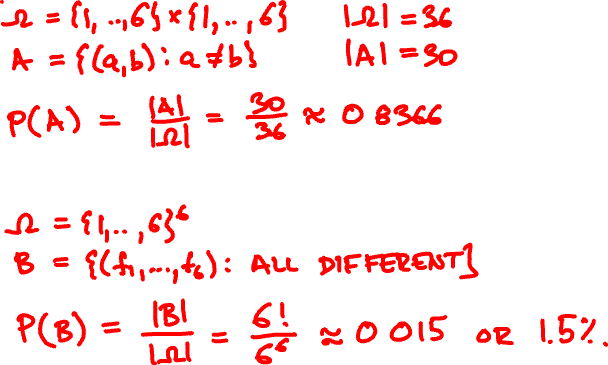 Ω = {1, .., 6} × {1, .., 6} |Ω| = 36
A = {(a,b) : a ≠ b} |A| = 30
P(A) = |A| / |Ω| = 30 / 36 ≈ 0 8366
Ω = {1, .., 6}⁶
B = {(f₁, ..., f₆) : ALL DIFFERENT}
P(B) = |B| / |Ω| = 6! / 6⁶ ≈ 0 015 OR 1.5%.